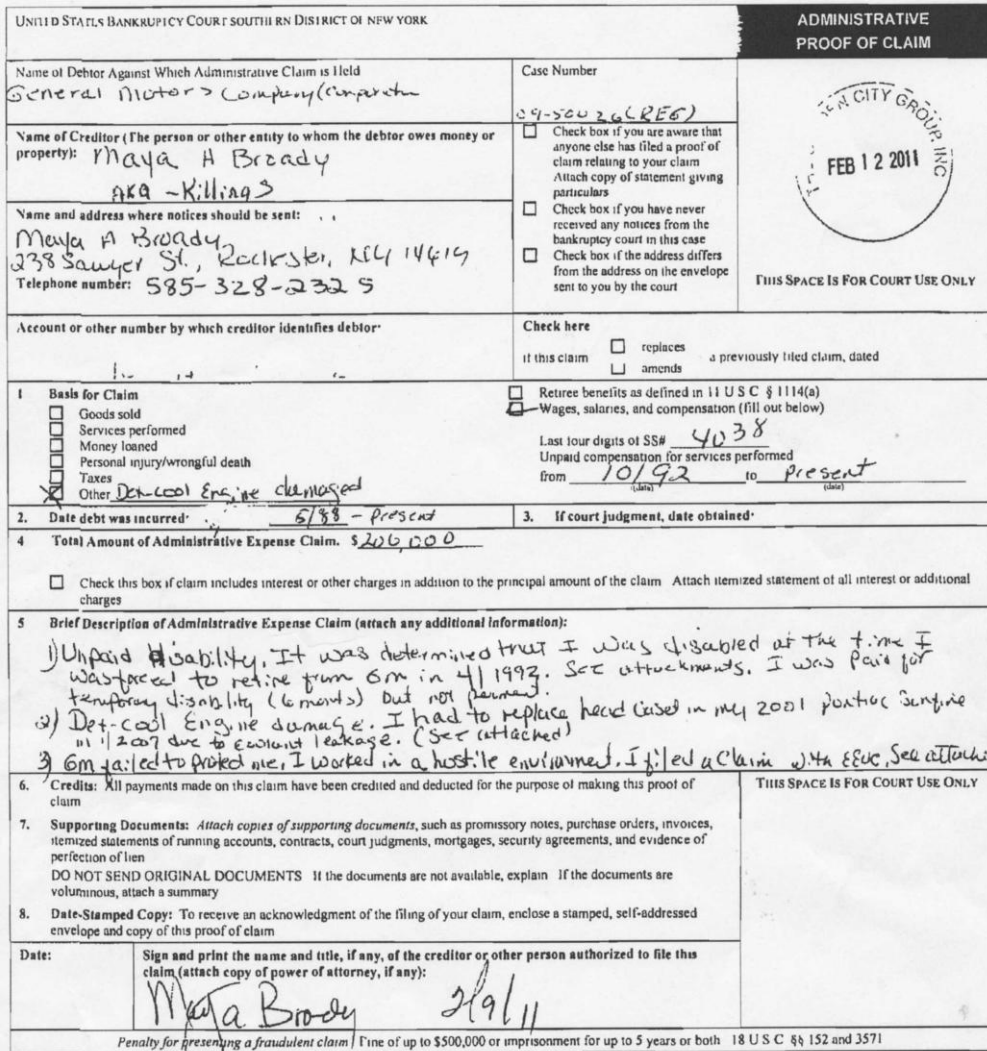 UNITED STATES BANKRUPTCY COURT SOUTHERN DISTRICT OF NEW YORK
ADMINISTRATIVE
PROOF OF CLAIM
Name of Debtor Against Which Administrative Claim is Held
General Motors Company (
Case Number
09-50026 (REG)
Name of Creditor (The person or other entity to whom the debtor owes money or
property): Maya A Broady
AKA - Killings
Check box if you are aware that
anyone else has filed a proof of
claim relating to your claim
Attach copy of statement giving
particulars
Check box if you have never
received any notices from the
bankruptcy court in this case
Check box if the address differs
from the address on the envelope
sent to you by the court
EN CITY GROUP, INC
FEB 12 2011
THIS SPACE IS FOR COURT USE ONLY
Name and address where notices should be sent:
Maya A Broady
238 Sawyer St., Rochester, NY 14619
Telephone number: 585-328-2325
Account or other number by which creditor identifies debtor:
Check here
if this claim
replaces
amends
a previously filed claim, dated
1 Basis for Claim
Goods sold
Services performed
Money loaned
Personal injury/wrongful death
Taxes
Other Det-cool Engine damaged
Retiree benefits as defined in 11 U S C § 1114(a)
Wages, salaries, and compensation (fill out below)
Last four digits of SS# 4038
Unpaid compensation for services performed
from 10/92 to present
(date) (date)
2. Date debt was incurred: 5/88 - Present
3. If court judgment, date obtained:
4 Total Amount of Administrative Expense Claim. $ 200,000
Check this box if claim includes interest or other charges in addition to the principal amount of the claim Attach itemized statement of all interest or additional
charges
5 Brief Description of Administrative Expense Claim (attach any additional information):
1) Unpaid Disability. It was determined that I was disabled at the time I
was forced to retire from Gm in 4/1992. See attachments. I was Paid for
temporary disability (6 months) but not
2) Det-cool Engine damage. I had to replace head in my 2001 pontiac Sunfire
in 1/2007 due to leakage. (See attached)
3) Gm failed to protect me, I worked in a hostile environment. I filed a Claim with EEOC, See
6. Credits: All payments made on this claim have been credited and deducted for the purpose of making this proof of
claim
THIS SPACE IS FOR COURT USE ONLY
7. Supporting Documents: Attach copies of supporting documents, such as promissory notes, purchase orders, invoices,
itemized statements of running accounts, contracts, court judgments, mortgages, security agreements, and evidence of
perfection of lien
DO NOT SEND ORIGINAL DOCUMENTS If the documents are not available, explain If the documents are
voluminous, attach a summary
8. Date-Stamped Copy: To receive an acknowledgment of the filing of your claim, enclose a stamped, self-addressed
envelope and copy of this proof of claim
Date:
Sign and print the name and title, if any, of the creditor or other person authorized to file this
claim (attach copy of power of attorney, if any):
Maya Broady 2/9/11
Penalty for presenting a fraudulent claim Fine of up to $500,000 or imprisonment for up to 5 years or both 18 U S C §§ 152 and 3571